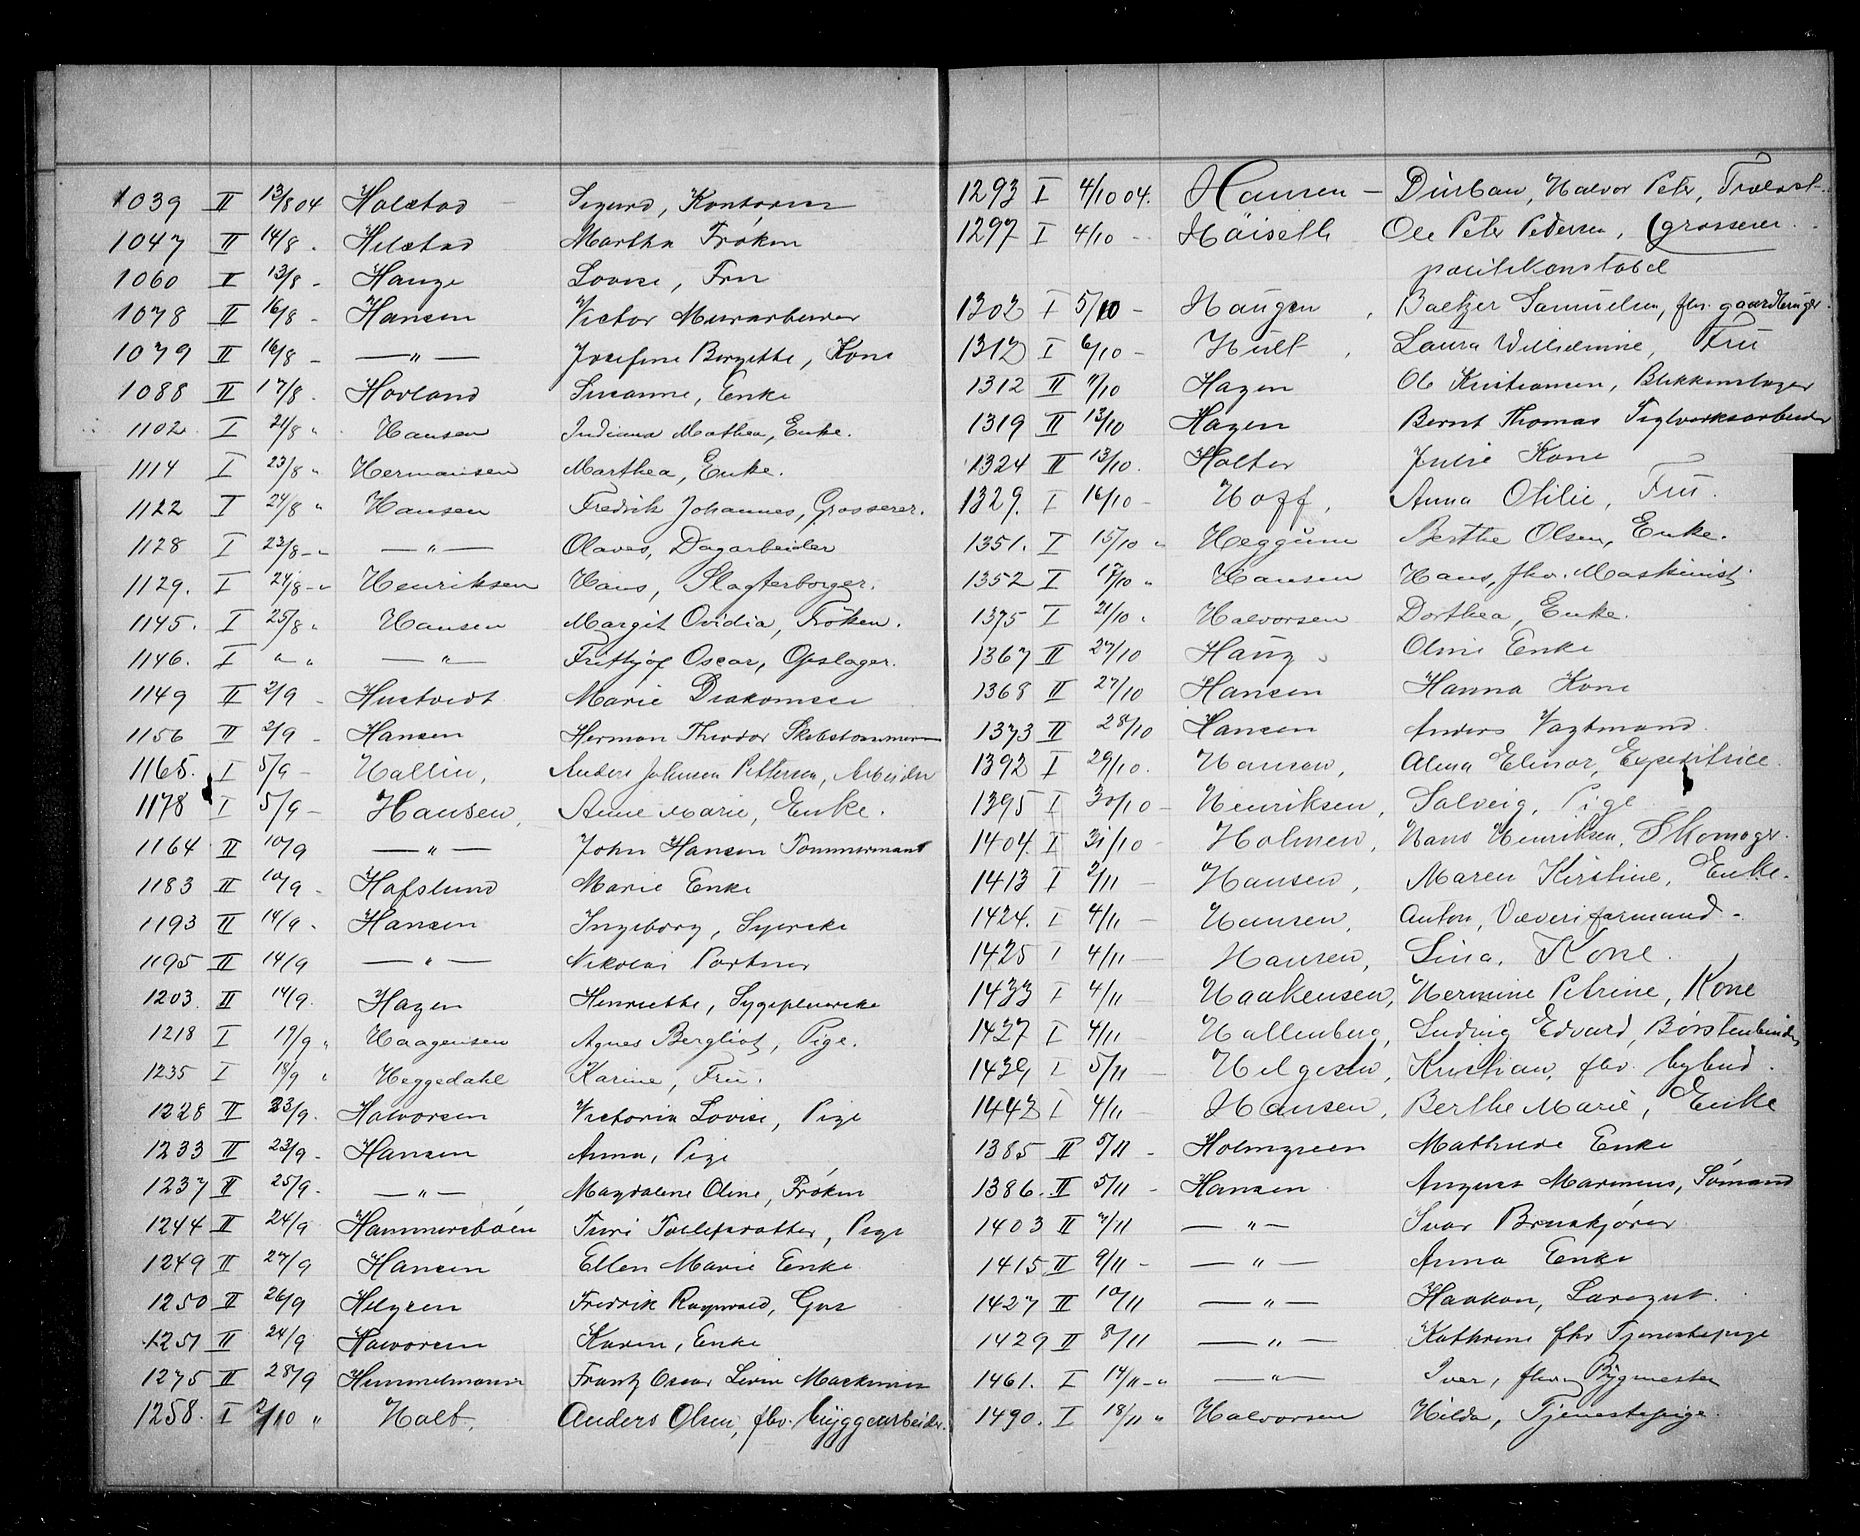 1039 II 13/8 04 Holstad Sigurd, Kontorist
1047 II 14/8 - Helstad Martha Frøken
1060 I 13/8 - Hauge Lovise, Fru
1078 II 16/8 - Hansen Victor Murarbeider
1079 II 16/8 - —〃— Josefine Birgitte, Kone
1088 II 17/8 - Hovland Susanne, Enke
1102 I 21/8 〃 Hansen Indiana Mathea, Enke.
1114 I 23/8 〃 Hermansen Marthea, Enke.
1122 I 21/8 〃 Hansen Fredrik Johannes, Grosserer.
1128 I 23/8 - 〃 —〃— Olaves, Dagarbeider
1129. I 24/8 - 〃 Henriksen Hans, Slagterborger.
1145. I 25/8 〃 Hansen Margit Ovidia, Frøken.
1146. I 〃 〃 —〃— Frithjof Oscar, Opslager.
1149 II 2/9 - Hustvedt Marie
1156 II 2/9 - Hansen Herman Theodor Skibstømmerm
1165. I 5/9 - Hallin, Anders Johnsen Pettersen, Arbeider
1178 I 5/9 - Hansen, Anne Marie, Enke.
1164 II 10/9 —〃— John Hansen Tømmermand
1183 II 10/9 - Hafslund Marie Enke
1193 II 14/9 - Hansen Ingeborg, Syerske
1195 II 14/9 —〃— Nikolai Portner
1203. II 14/9. Hagen Henriette, Sygepleierske
1218 I 17/9 〃 Haagensen Agnes Bergliot, Pige.
1235 I 18/9 〃 Heggedahl Karine, Fru.
1228 II 23/9. Halvorsen Victoria Lovise, Pige
1233 II 23/9 - Hansen Anna, Pige
1237 II 25/9 - —〃— Magdalene Oline, Frøken
1244 II 24/9 Hammersbøen Turi Tollefsdatter, Pige
1249 II 27/9 Hansen Ellen Marie Enke
1250 II 26/9 Helgesen Fredrik Ragnvald, Gut
1251 II 24/9 Halvorsen Karen, Enke
1275 II 28/9 Himmelmann Frantz Oscar Maskinist
1258. I 2/10 〃 Holt. Anders Olsen, fhv. bryggearbeider.
1293 I 4/10 04. Hansen — Durban, Halvor Peter,
1297 I 4/10 - Høiseth Ole Peter Pedersen, (grosserer
politikonstabel
1302 I 5/10 - Haugen, Baltzer Samuelsen, fhv. gaardbruger.
1312 I 6/10 - Hult, Laura Wilhelmine, Fru
1312 II 7/10 Hagen Ole Kristiansen, Blikkenslager
1319 II 13/10 Hagen Bernt Thomas Teglverksarbeider
1324 II 13/10. Holter Julie Kone
1329. I 16/10 - Hoff, Anna Otilie, Fru.
1351. I 15/10 〃 Heggum Berthe Olsen, Enke.
1352 I 17/10 〃 Hansen Hans, fhv. Maskinist.
1375 I 21/10 〃 Halvorsen Dorthea, Enke.
1367 II 27/10 Haug Oline Enke
1368 II 27/10 Hansen Hanna Kone
1373 II 28/10 Hansen Anders Vagtmand
1392 I 29/10. Hansen, Alma Elinor, Expeditrice.
1395 I 30/10 - Henriksen, Solveig, Pige
1404. I 31/10 - Holmen, Hans Henriksen, Skomagr.
1413 I 2/11 - Hansen, Maren Kirstine, Enke.
1424. I 4/11 - Hansen, Anton, Væveriformand.
1425 I 4/11 - Hansen, Lina, Kone.
1433 I 4/11 - Haakensen, Hermine Petrine, Kone
1437. I 4/11 - Hallenberg, Ludvig Edvard, Børstenbinder
1439 I 5/11 - Helgesen, Kristian, fhv. bybud.
1442 I 4/11 - Hansen, Berthe Marie, Enke
1385 II 5/11 - Holmgreen Mathilde Enke
1386. II 5/11 - Hansen August Marinius, Sømand
1403 II 7/11 —〃— Ivar
1415 II 9/11 - —〃— Anna Enke
1427 II 10/11 —〃— Haakon,
1429 II 8/11 —〃— Kathrine fhv Tjenestepige
1461. I 14/11 - 〃 —〃— Iver, fhv. Bygmester
1490. I 18/11 〃 Halvorsen Hilda, Tjenestepige.